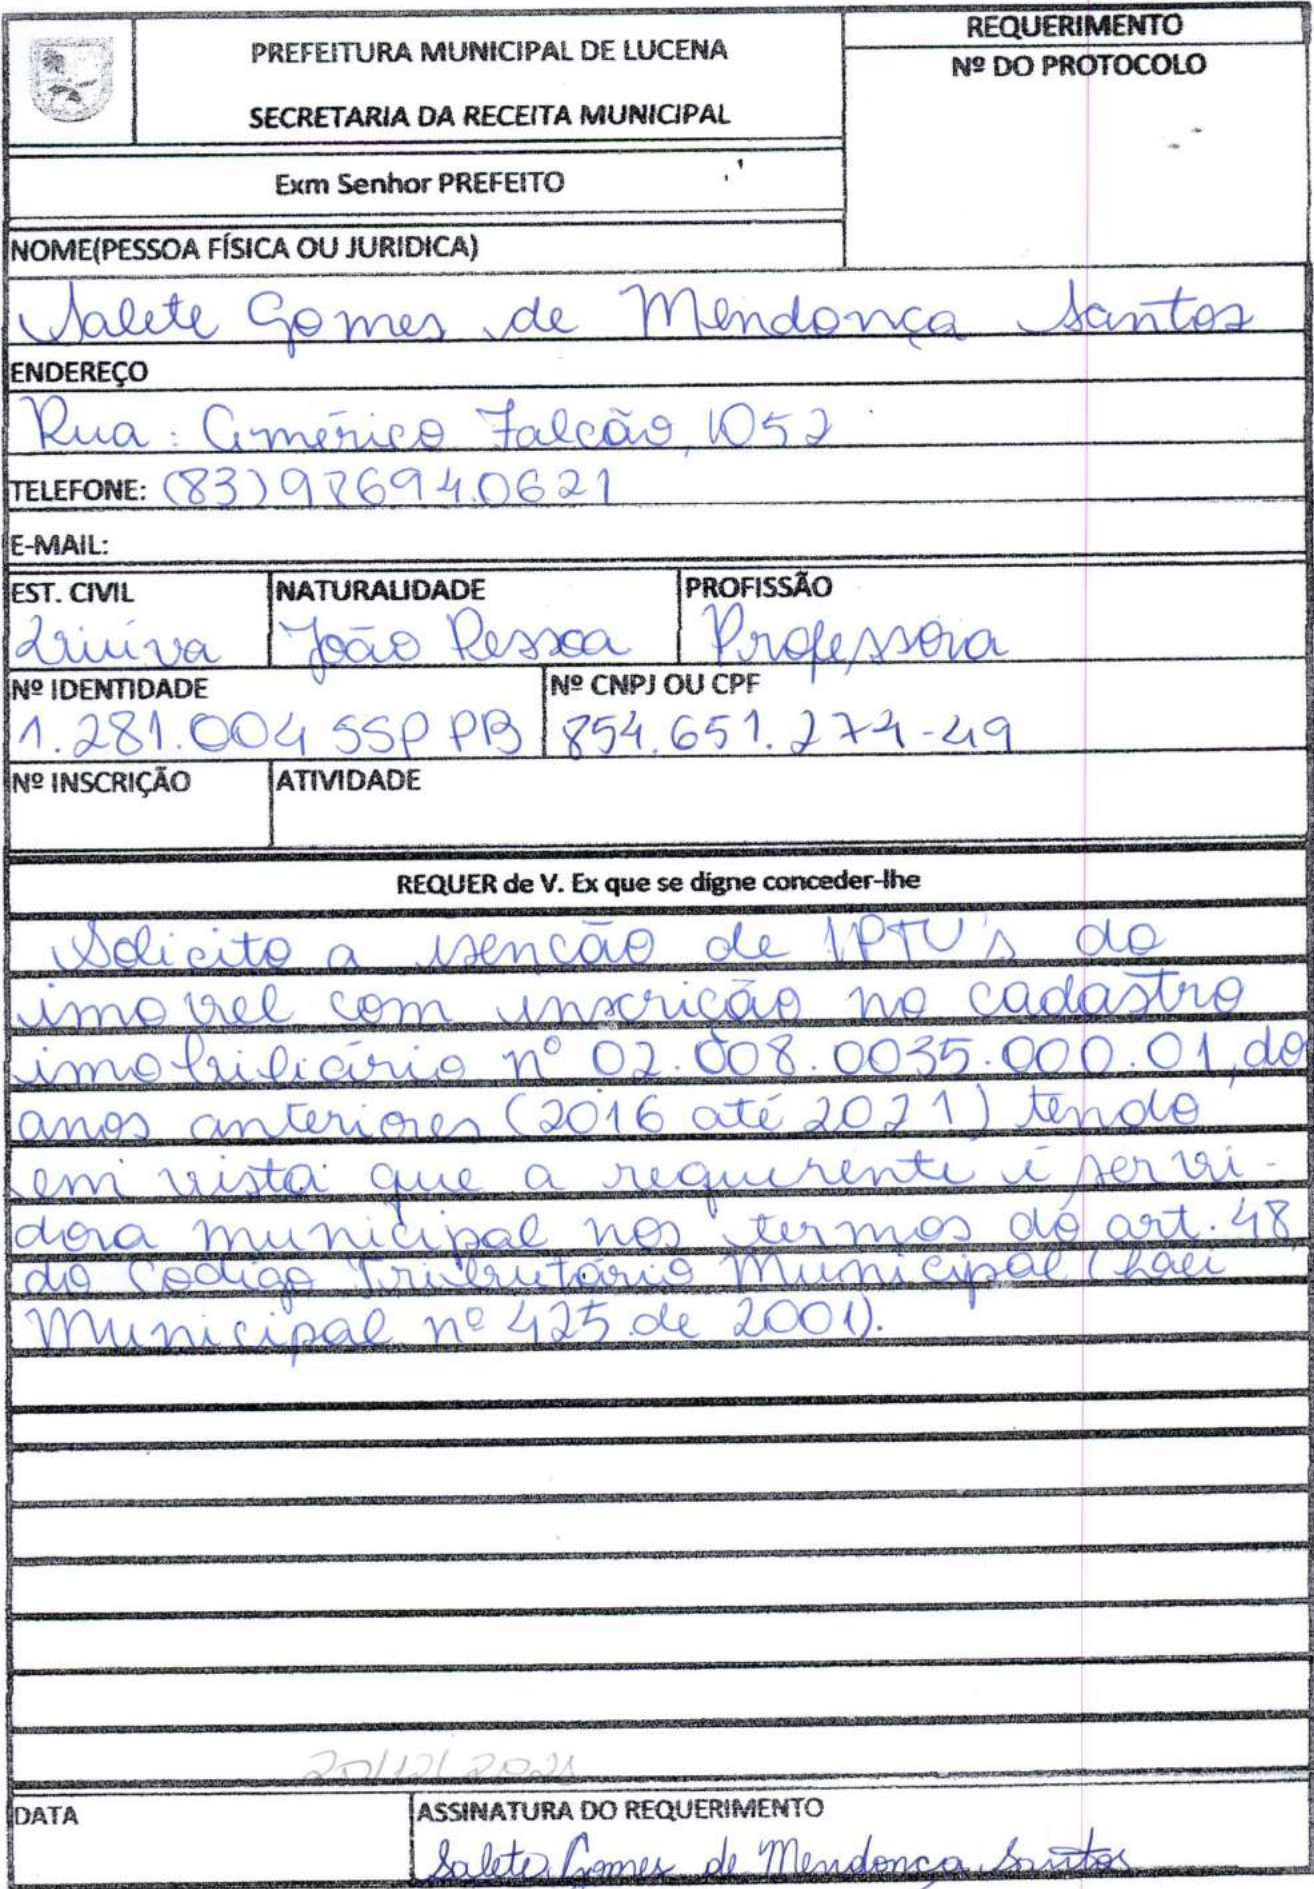 PREFEITURA MUNICIPAL DE LUCENA
SECRETARIA DA RECEITA MUNICIPAL
REQUERIMENTO
Nº DO PROTOCOLO
Exm Senhor PREFEITO
NOME(PESSOA FÍSICA OU JURIDICA)
Salete Gomes de Mendonça Santos
ENDEREÇO
Rua: Américo Falcão, 1052
TELEFONE: (83) 98694.0621
E-MAIL:
EST. CIVIL NATURALIDADE PROFISSÃO
Viúva João Pessoa Professora
Nº IDENTIDADE Nº CNPJ OU CPF
1.281.004 SSP PB 854.651.274-49
Nº INSCRIÇÃO ATIVIDADE
REQUER de V. Ex que se digne conceder-lhe
Solicito a isencão de IPTU's do
imovel com inscrição no cadastro
imobiliário nº 02.008.0035.000.01, do
anos anteriores (2016 até 2021) tendo
em vista que a requerente é servi-
dora municipal nos termos do art. 48
do Codigo Tributário Municipal (Lei
Municipal nº 425 de 2001).
20/12/2021
DATA ASSINATURA DO REQUERIMENTO
Salete Gomes de Mendonça Santos